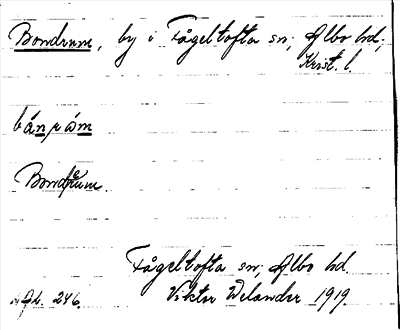 Bondrum, by i Fågeltofta sn, Albo hd,
Krist. l.
bánrám
Bondrum.
Fågeltofta sn, Albo hd.
Viktor Welander 1919